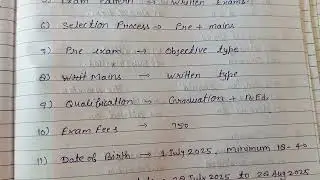 Exam Pattern → Written Exams
6) Selection Process → Pre + mains
7) Pre exam → Objective type
8) Mains → written type
9) Qualification → Graduation + B.Ed.
10) Exam Fees → 750
11) Date of Birth → 1 July 2025, Minimum 18-40
July 2025 to 28 Aug 2025